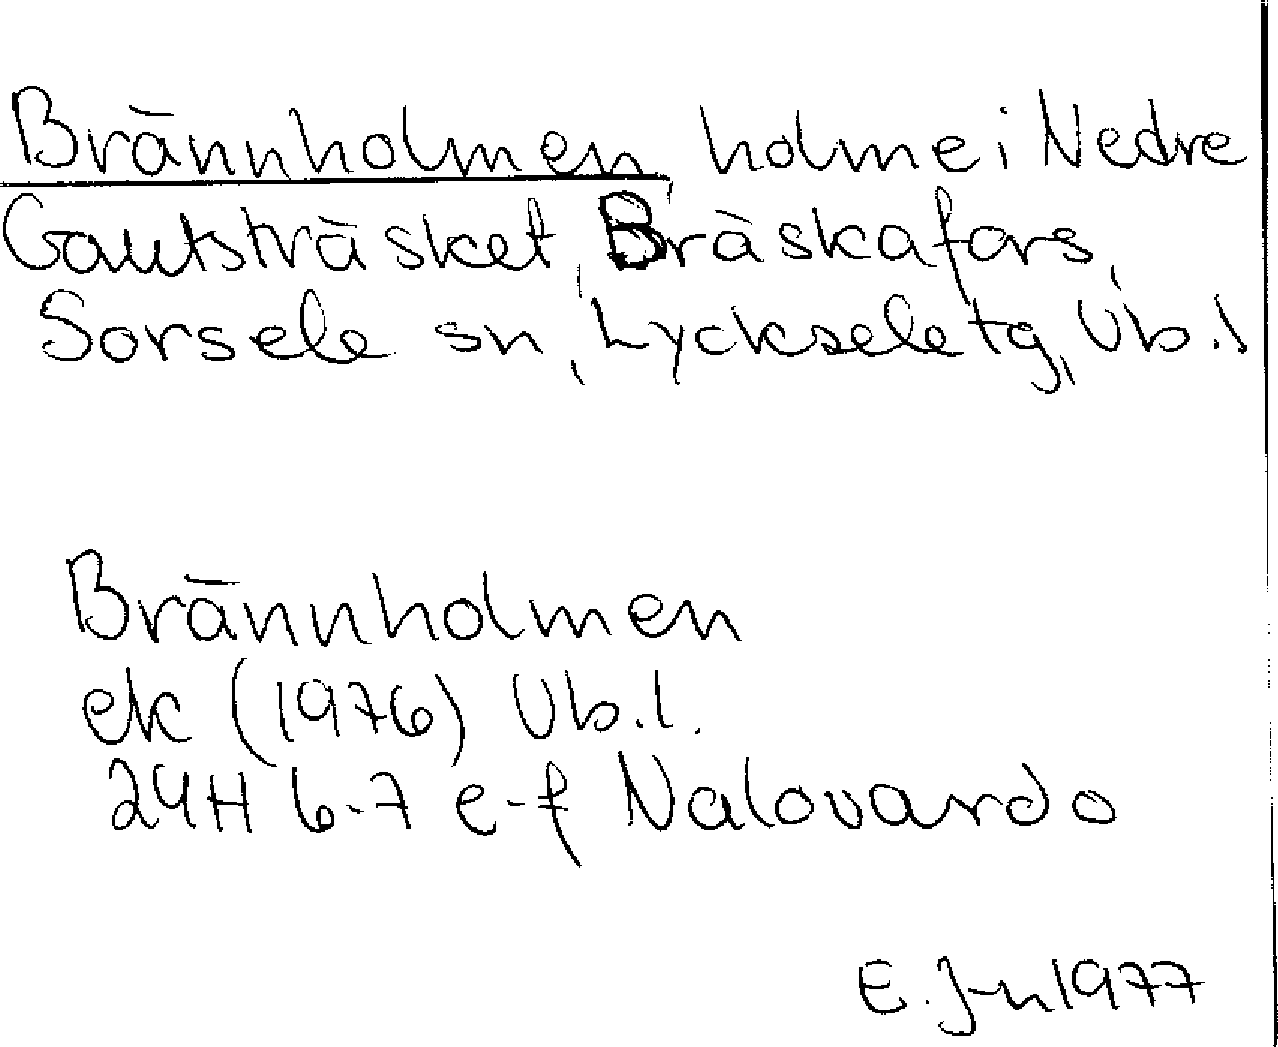 Brännholmen holme i Nedre
Gautsträsket, Bräskafors,
Sorsele sn, Lycksele tg, Vb.l
Brännholmen
ek (1976) Vb.l.
24H 6-7 e-f Nalovardo
E. J-n 1977